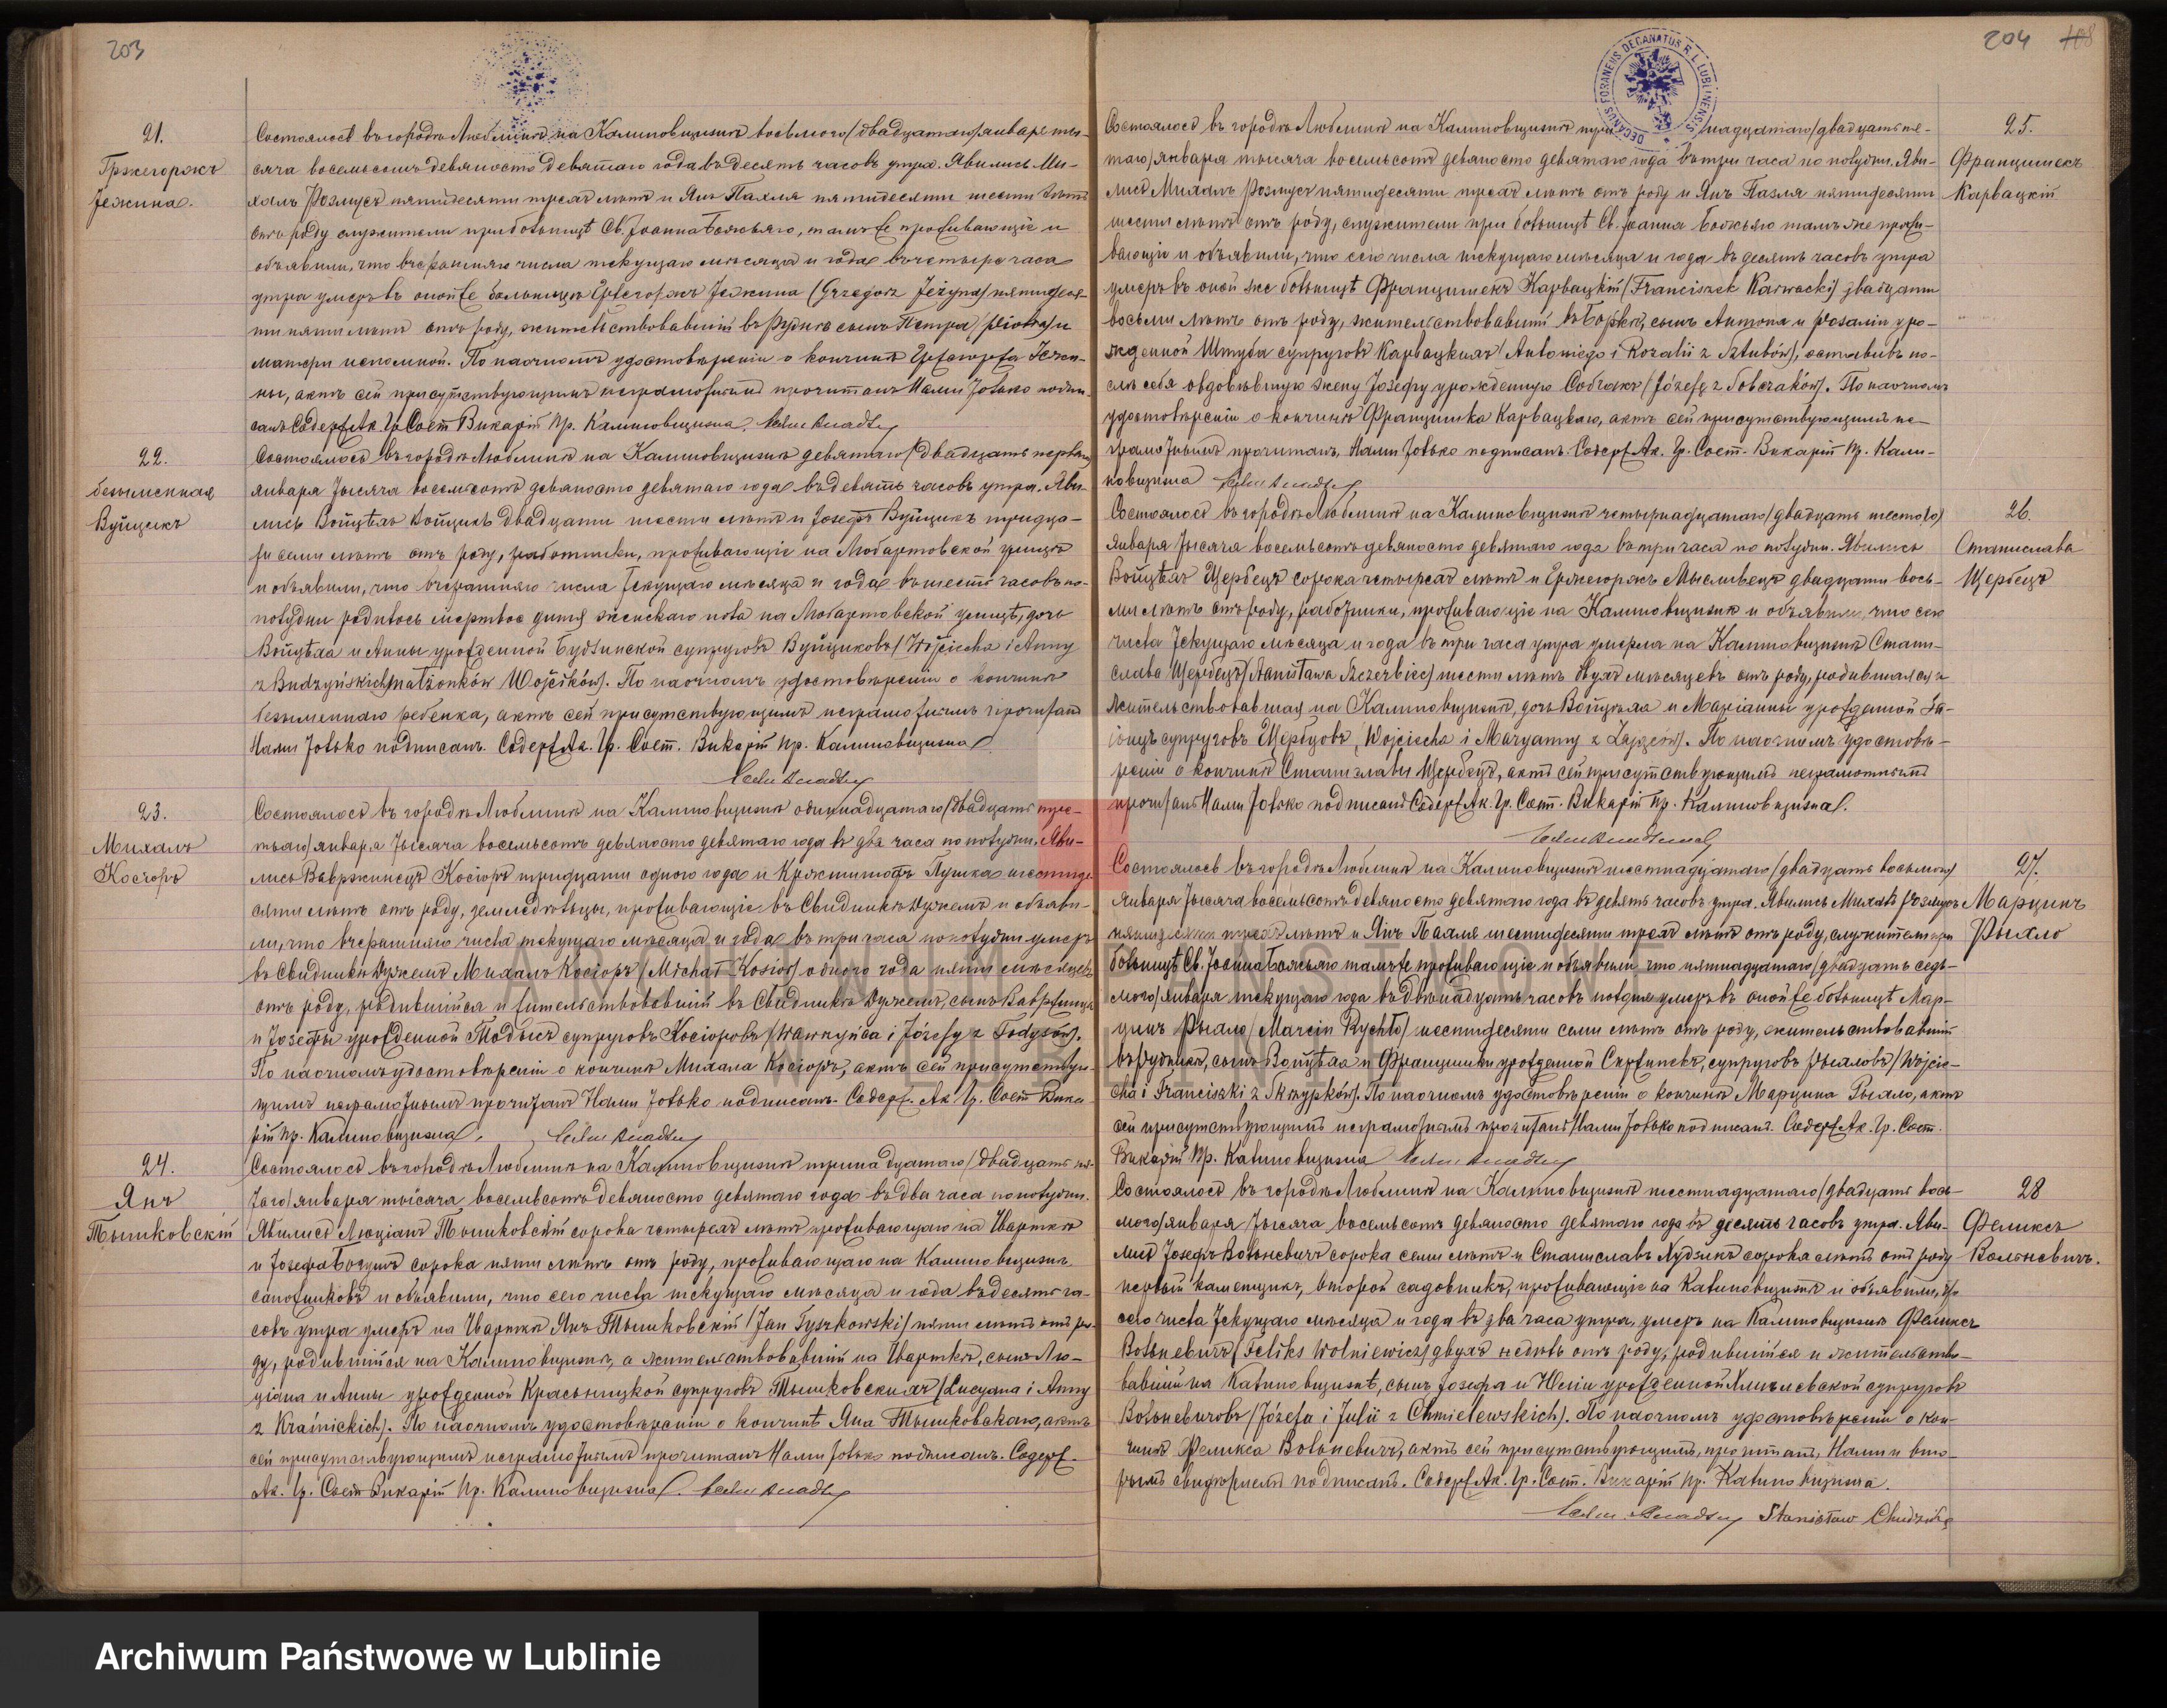 203
21.
Гржегоржъ
Іежина.
Состоялось въ городѣ Люблинѣ на Калиновщизнѣ восьмого/двадцатаго/января ты-
сяча восемьсотъ девяносто девятаго года въ десять часовъ утра. Явились Ми-
халъ Розмусъ пятидесяти трехъ лѣтъ и Янъ Пахля пятидесяти шести лѣтъ
отъ роду служители при больницѣ Св. Іоанна Божьяго, тамъ же проживающіе и
объявили, что вчерашняго числа текущаго мѣсяца и года въ четыре часа
утра умеръ въ оной же больницѣ Гржегоржъ Іежина (Grzegorz Jeżyna) пятидеся-
ти пяти лѣтъ отъ роду, жительствовавшій въ Рудникѣ сынъ Петра /Piotra/ и
матери неполной. По наочномъ удостовѣреніи о кончинѣ Гржегоржа Іежи-
ны, актъ сей присутствующимъ неграмотнымъ прочитанъ Нами только подпи-
санъ Содерж. Ак. Гр. Сост. Викарій Пр. Калиновщизна.
22.
безыменная
Вуйцикъ
Состоялось въ городѣ Люблинѣ на Калиновщизнѣ девятаго/двадцать перваго/
января тысяча восемьсотъ девяносто девятаго года въ девять часовъ утра. Яви-
лись Войцѣхъ Войцикъ двадцати шести лѣтъ и Іосефъ Вуйцикъ тридца-
ти семи лѣтъ отъ роду, работники, проживающіе на Любартовской улицѣ
и объявили, что вчерашняго числа текущаго мѣсяца и года въ шесть часовъ по-
полудни родилось мертвое дитя женскаго пола на Любартовской улицѣ, дочь
Войцѣха и Анны урожденной Будзинской супруговъ Вуйциковъ /Wojciecha i Anny
z Budzyńskich małżonków Wójcików/. По наочномъ удостовѣреніи о кончинѣ
безыменнаго ребенка, актъ сей присутствующимъ неграмотнымъ прочитанъ
Нами только подписанъ. Содерж. Ак. Гр. Сост. Викарій Пр. Калиновщизна
23.
Михалъ
Косіоръ
Состоялось въ городѣ Люблинѣ на Калиновщизнѣ одиннадцатаго/двадцать тре-
тьяго/января тысяча восемьсотъ девяносто девятаго года въ два часа по полудни. Яви-
лись Вавржинецъ Косіоръ тридцати одного года и Кржиштофъ Пушка шестиде-
сяти лѣтъ отъ роду, земледѣльцы, проживающіе въ Свидникѣ Дужемъ и объяви-
ли, что вчерашняго числа текущаго мѣсяца и года въ три часа пополудни умеръ
въ Свидникѣ Дужемъ Михалъ Косіоръ /Michał Kosior/ одного года пяти мѣсяцевъ
отъ роду, родившійся и жительствовавшій въ Свидникѣ Дужемъ, сынъ Вавржинца
и Іозефы урожденной Тодысъ супруговъ Косіоровъ /Wawrzyńca i Józefy z Todysów/.
По наочномъ удостовѣреніи о кончинѣ Михала Косіоръ, актъ сей присутствую-
щимъ неграмотнымъ прочитанъ Нами только подписанъ. Содерж. Ак. Гр. Сост. Вика-
рій Пр. Калиновщизна.
24.
Янъ
Тышковскій
Состоялось въ городѣ Люблинѣ на Калиновщизнѣ тринадцатаго/двадцать пя-
таго/января тысяча восемьсотъ девяносто девятаго года въ два часа пополудни.
Явились Люціанъ Тышковскій сорока четырехъ лѣтъ проживающаго на Цварткѣ
и Іозефа сорока пяти лѣтъ отъ роду, проживающаго на Калиновщизнѣ
сапожниковъ и объявили, что сего числа текущаго мѣсяца и года въ десять ча-
совъ утра умеръ на Цварткѣ Янъ Тышковскій /Jan Tyszkowski/ пяти лѣтъ отъ ро-
ду, родившійся на Калиновщизнѣ, а жительствовавшій на Цварткѣ, сынъ Лю-
ціана и Анны урожденной Красьницкой супруговъ Тышковскихъ /Lucyana i Anny
z Kraśnickich/. По наочномъ удостовѣреніи о кончинѣ Яна Тышковскаго, актъ
сей присутствующимъ неграмотнымъ прочитанъ Нами только подписанъ. Содерж.
Ак. Гр. Сост. Викарій Пр. Калиновщизна.
204 108
DECANUS FORANEUS DECANATUS R. L. LUBLINENSIS
25.
Францишекъ
Карвацкій
Состоялось въ городѣ Люблинѣ на Калиновщизнѣ три надцатаго/двадцать пя-
таго/января тысяча восемьсотъ девяносто девятаго года въ три часа по полудни. Яви-
лись Михалъ Розмусъ пятидесяти трехъ лѣтъ отъ роду и Янъ Пахля пятидесяти
шести лѣтъ отъ роду, служители при больницѣ Св. Іоанна Божьяго тамъ же прожи-
вающіе и объявили, что сего числа текущаго мѣсяца и года въ десять часовъ утра
умеръ въ оной же больницѣ Францишекъ Карвацкій /Franciszek Karwacki/ двадцати
восьми лѣтъ отъ роду, жительствовавшій въ Боркѣ, сынъ Антона и Розаліи уро-
жденной Штуба супруговъ Карвацкихъ /Antoniego i Rozalii z Sztubów/, оставивъ по-
слѣ себя овдовѣвшую жену Іозефу урожденную Собчакъ /Józefę z Sobczaków/. По наочномъ
удостовѣреніи о кончинѣ Францишка Карвацкаго, актъ сей присутствующимъ не-
грамотнымъ прочитанъ, Нами только подписанъ. Содерж. Ак. Гр. Сост. Викарій Пр. Кали-
новщизна
26.
Станислава
Щербецъ
Состоялось въ городѣ Люблинѣ на Калиновщизнѣ четырнадцатаго/двадцать шестого/
января тысяча восемьсотъ девяносто девятаго года въ три часа по полудни. Явились
Войцѣхъ Щербецъ сорока четырехъ лѣтъ и Гржегоржъ Мысливецъ двадцати вось-
ми лѣтъ отъ роду, работники, проживающіе на Калиновщизнѣ и объявили, что сего
числа текущаго мѣсяца и года въ три часа утра умерла на Калиновщизнѣ Стани-
слава Щербецъ /Stanisława Szczerbiec/ шести лѣтъ двухъ мѣсяцевъ отъ роду, родившаяся и
жительствовавшая на Калиновщизнѣ, дочь Войцѣха и Маріанны урожденной За-
іонцъ супруговъ Щербцовъ /Wojciecha i Maryanny z Zającow/. По наочномъ удостовѣ-
реніи о кончинѣ Станиславы Щербецъ, актъ сей присутствующимъ неграмотнымъ
прочитанъ Нами только подписанъ Содерж. Ак. Гр. Сост. Викарій Пр. Калиновщизна.
27.
Марцинъ
Рыхло
Состоялось въ городѣ Люблинѣ на Калиновщизнѣ шестнадцатаго/двадцать восьмого/
января тысяча восемьсотъ девяносто девятаго года въ девять часовъ утра. Явились Михалъ Розмусъ
пятидесяти трехъ лѣтъ и Янъ Пахля шестидесяти трехъ лѣтъ отъ роду, служители при
больницѣ Св. Іоанна Божьяго тамъ же проживающіе и объявили что пятнадцатаго/двадцать седь-
мого/января текущаго года въ двѣнадцать часовъ полдня умеръ въ оной же больницѣ Мар-
цинъ Рыхло /Marcin Rychło/ шестидесяти семи лѣтъ отъ роду, жительствовавшій
въ Рудникѣ, сынъ Войцѣха и Францишки урожденной Скржипекъ, супруговъ Рыхловъ /Wojcie-
cha i Franciszki z Skrzypków/. По наочномъ удостовѣреніи о кончинѣ Марцина Рыхло, актъ
сей присутствующимъ неграмотнымъ прочитанъ Нами только подписанъ. Содерж. Ак. Гр. Сост.
Викарій Пр. Калиновщизна
28
Феликсъ
Вольневичъ.
Состоялось въ городѣ Люблинѣ на Калиновщизнѣ шестнадцатаго/двадцать вось-
мого/января тысяча восемьсотъ девяносто девятаго года въ десять часовъ утра. Яви-
лись Іозефъ Вольневичъ сорока семи лѣтъ и Станиславъ Худзикъ сорока лѣтъ отъ роду
первый каменщикъ, второй садовникъ, проживающіе на Калиновщизнѣ и объявили, что
сего числа текущаго мѣсяца и года въ два часа утра, умеръ на Калиновщизнѣ Феликсъ
Вольневичъ /Feliks Wolniewicz/ двухъ недѣль отъ роду, родившійся и жительство-
вавшій на Калиновщизнѣ, сынъ Іозефа и Юліи урожденной Хмѣлевской супруговъ
Вольневичовъ /Józefa i Julii z Chmielewskich/. По наочномъ удостовѣреніи о кон-
чинѣ Феликса Вольневичъ, актъ сей присутствующимъ, прочитанъ, Нами и вто-
рымъ свидѣтелемъ подписанъ. Содерж. Ак. Гр. Сост. Викарій Пр. Калиновщизна.
Stanisław Chudzik
ARCHIWUM PAŃSTWOWE
W LUBLINIE
Archiwum Państwowe w Lublinie